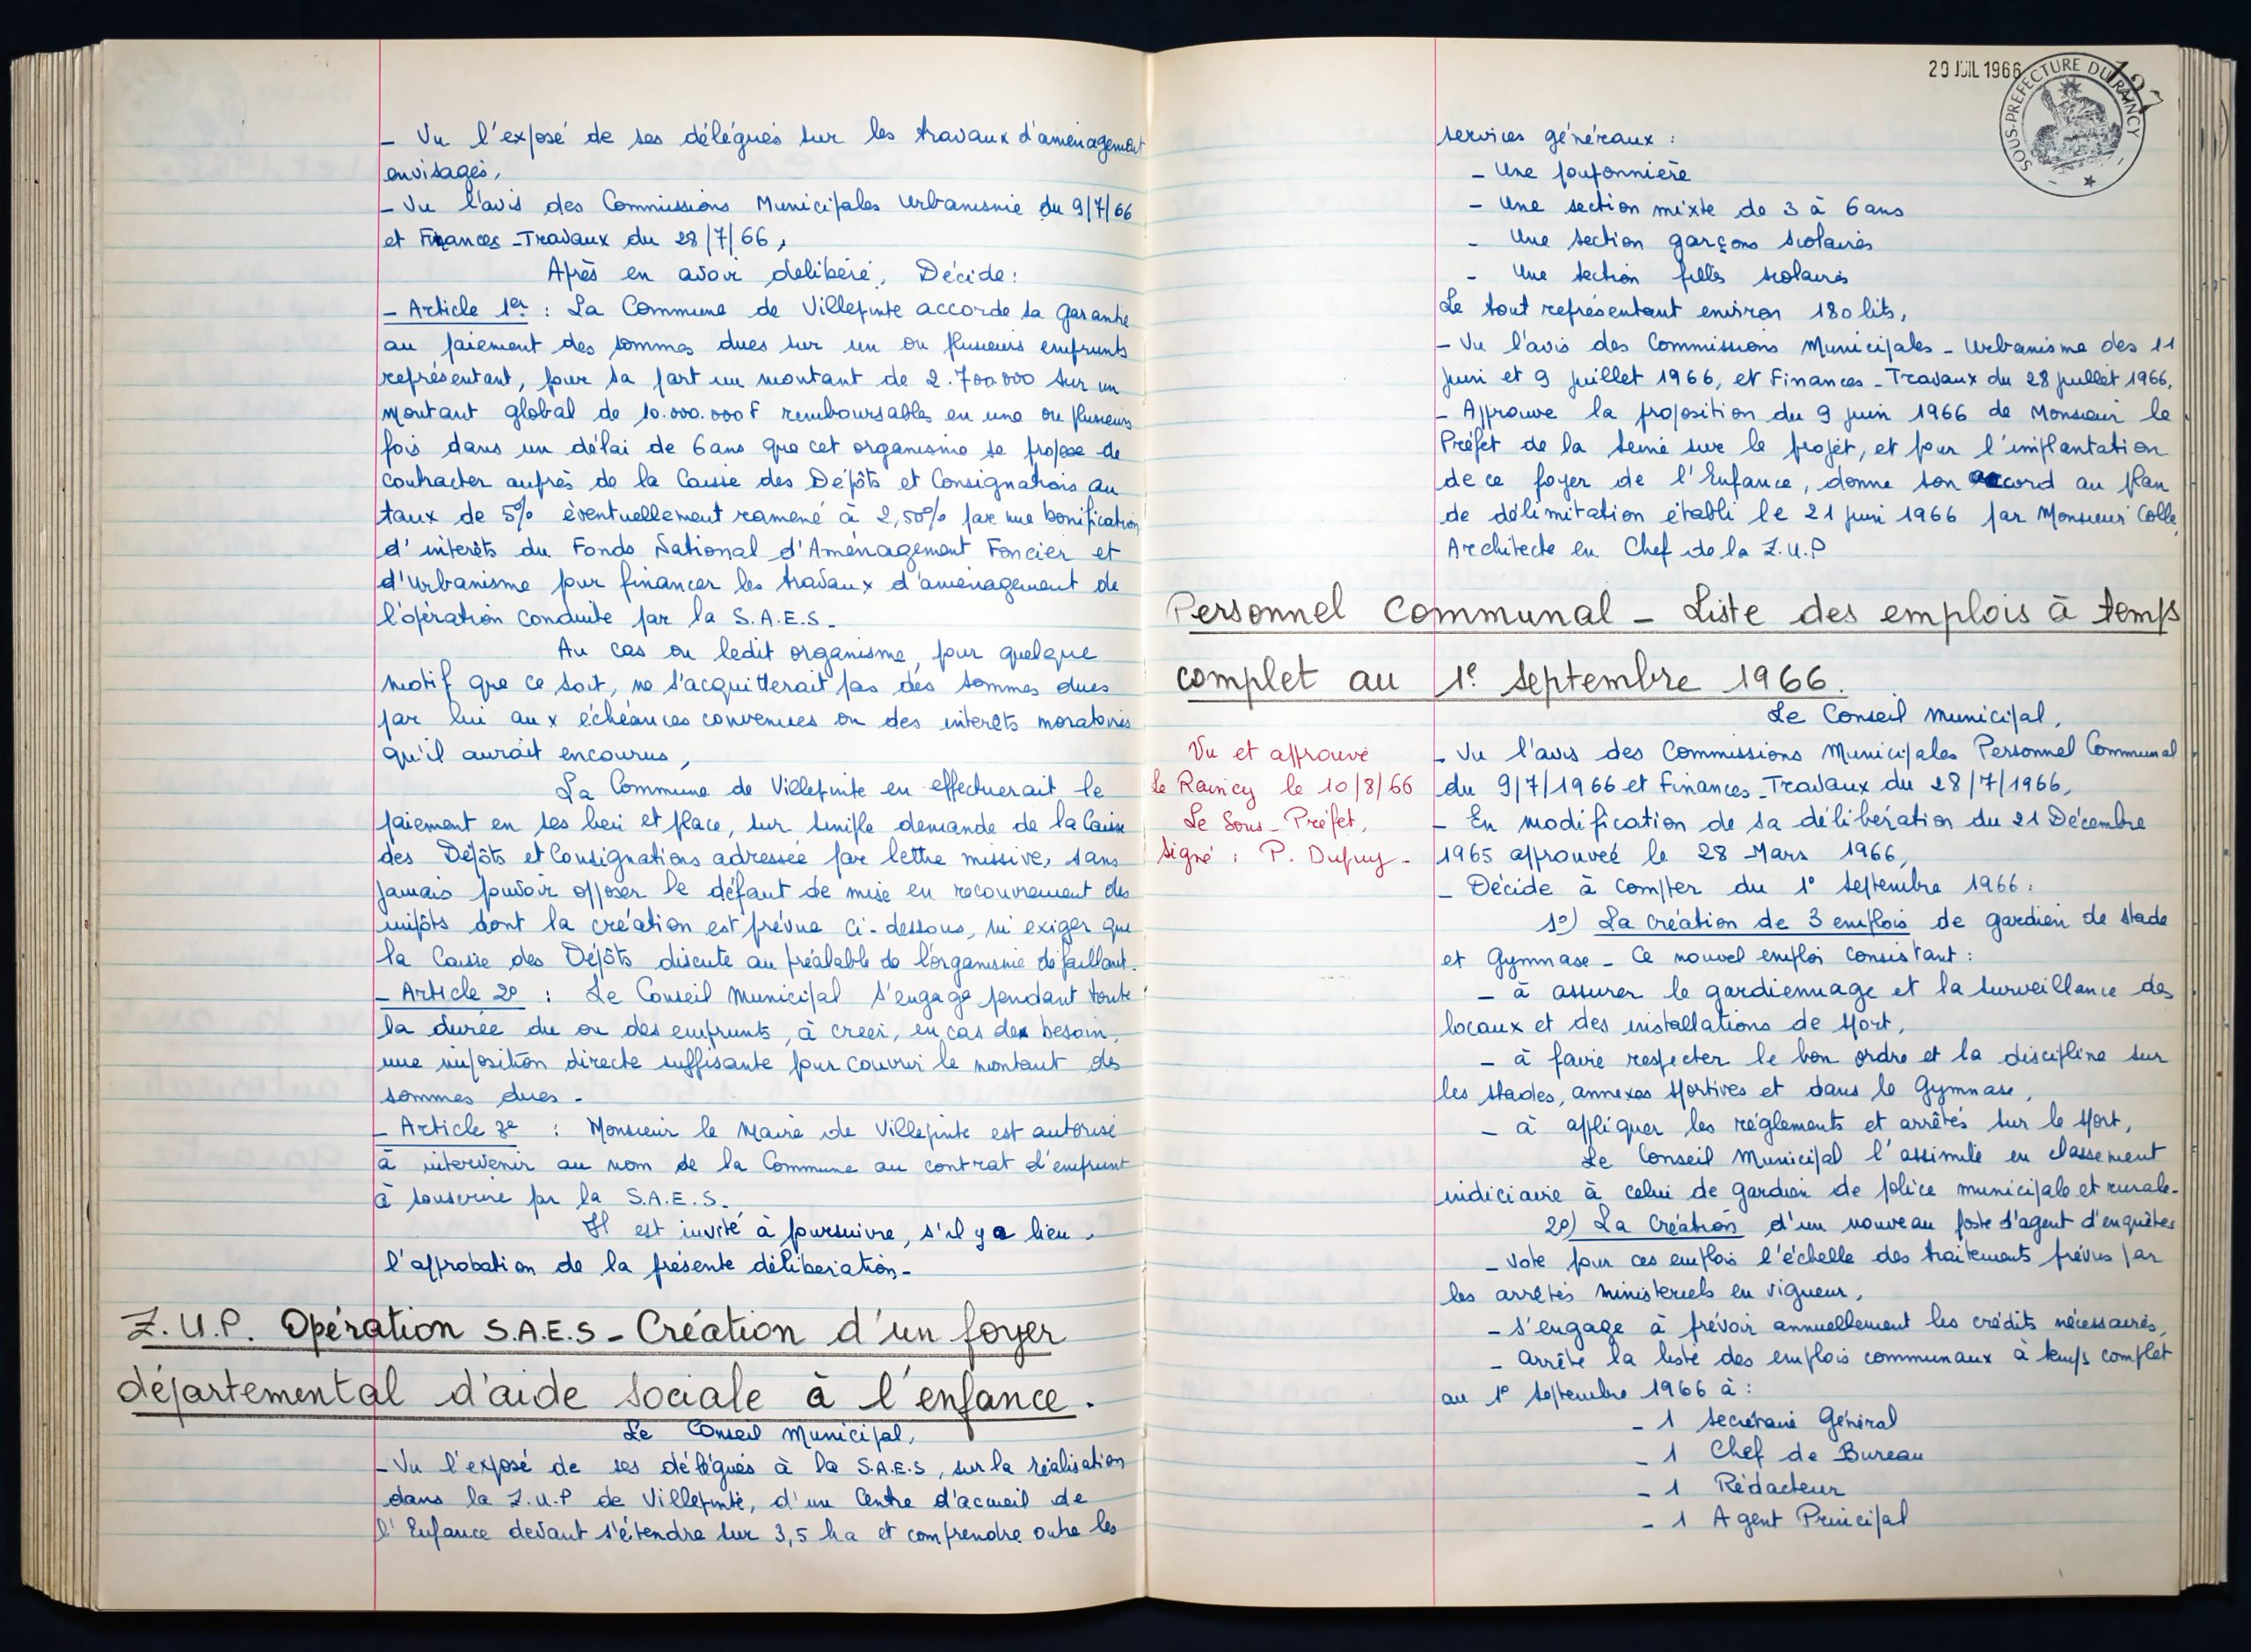 - Vu l'exposé de ses délégués sur les travaux d'aménagement
envisagés,
- Vu l'avis des Commissions Municipales Urbanisme du 9/7/66
et Finances - Travaux du 28/7/66,
Après en avoir délibéré, Décide :
- Article 1er : La Commune de Villepinte accorde sa garantie
au paiement des sommes dues sur un ou plusieurs emprunts
représentant, pour sa part un montant de 2.700.000 sur un
montant global de 10.000.000 F remboursables en une ou plusieurs
fois dans un délai de 6 ans que cet organisme se propose de
contracter auprès de la Caisse des Dépôts et Consignations au
taux de 5% éventuellement ramené à 2,50% par une bonification
d'intérêts du Fonds National d'Aménagement Foncier et
d'Urbanisme pour financer les travaux d'aménagement de
l'opération conduite par la S.A.E.S.
Au cas ou ledit organisme, pour quelque
motif que ce soit, ne s'acquitterait pas des sommes dues
par lui aux échéances convenues ou des interêts moratoires
qu'il aurait encourus,
La Commune de Villepinte en effectuerait le
paiement en ses lieu et place, sur simple demande de la Caisse
des Dépôts et Consignations adressée par lettre missive, sans
jamais pouvoir opposer le défaut de mise en recouvrement des
impôts dont la création est prévue ci-dessous, ni exiger que
la Caisse des Dépôts discute au préalable de l'organisme défaillant.
- Article 2e : Le Conseil Municipal s'engage pendant toute
la durée du ou des emprunts, à créer, en cas de besoin,
une imposition directe suffisante pour couvrir le montant des
sommes dues -
- Article 3e : Monsieur le Maire de Villepinte est autorisé
à intervenir au nom de la Commune au contrat d'emprunt
à souscrire par la S.A.E.S.
Il est invité à poursuivre, s'il y a lieu,
l'approbation de la présente délibération -
Z.U.P. Opération S.A.E.S - Création d'un foyer
départemental d'aide sociale à l'enfance.
Le Conseil Municipal,
- Vu l'exposé de ses délégués à la S.A.E.S, sur la réalisation
dans la Z.U.P de Villepinte, d'un Centre d'accueil de
l'Enfance devant s'étendre sur 3,5 ha et comprendre outre les
29 JUIL 1966
SOUS-PREFECTURE DU RAINCY
services généraux :
- Une pouponnière
- Une section mixte de 3 à 6 ans
- Une section garçons scolaires
- Une section filles scolaires
Le tout représentant environ 180 lits,
- Vu l'avis des Commissions Municipales - Urbanisme des 11
juin et 9 juillet 1966, et Finances - Travaux du 28 juillet 1966,
- Approuve la proposition du 9 juin 1966 de Monsieur le
Préfet de la Seine sur le projet, et pour l'implantation
de ce foyer de l'Enfance, donne son accord au plan
de délimitation établi le 21 juin 1966 par Monsieur Colle,
Architecte en Chef de la Z.U.P
Personnel Communal - Liste des emplois à temps
complet au 1e septembre 1966.
Le Conseil Municipal,
Vu et approuvé
le Raincy le 10/8/66
Le Sous-Préfet,
Signé : P. Dupuy -
- Vu l'avis des Commissions Municipales Personnel Communal
du 9/7/1966 et Finances - Travaux du 28/7/1966,
- En modification de sa délibération du 21 Décembre
1965 approuvée le 28 Mars 1966,
- Décide à compter du 1e septembre 1966 :
1°) La création de 3 emplois de gardien de stade
et Gymnase - Ce nouvel emploi consistant :
- à assurer le gardiennage et la surveillance des
locaux et des installations de sport,
- à faire respecter le bon ordre et la discipline sur
les stades, annexes sportives et dans le Gymnase,
- à appliquer les réglements et arrêtés sur le sport,
Le Conseil Municipal l'assimile en classement
indiciaire à celui de gardien de police municipale et rurale -
2°) La Création d'un nouveau poste d'agent d'enquêtes
- Vote pour ces emplois l'échelle des traitements prévus par
les arrêtés ministeriels en vigueur,
- S'engage à prévoir annuellement les crédits nécessaires,
- arrête la liste des emplois communaux à temps complet
au 1e septembre 1966 à :
- 1 Secrétaire Général
- 1 Chef de Bureau
- 1 Rédacteur
- 1 Agent Principal